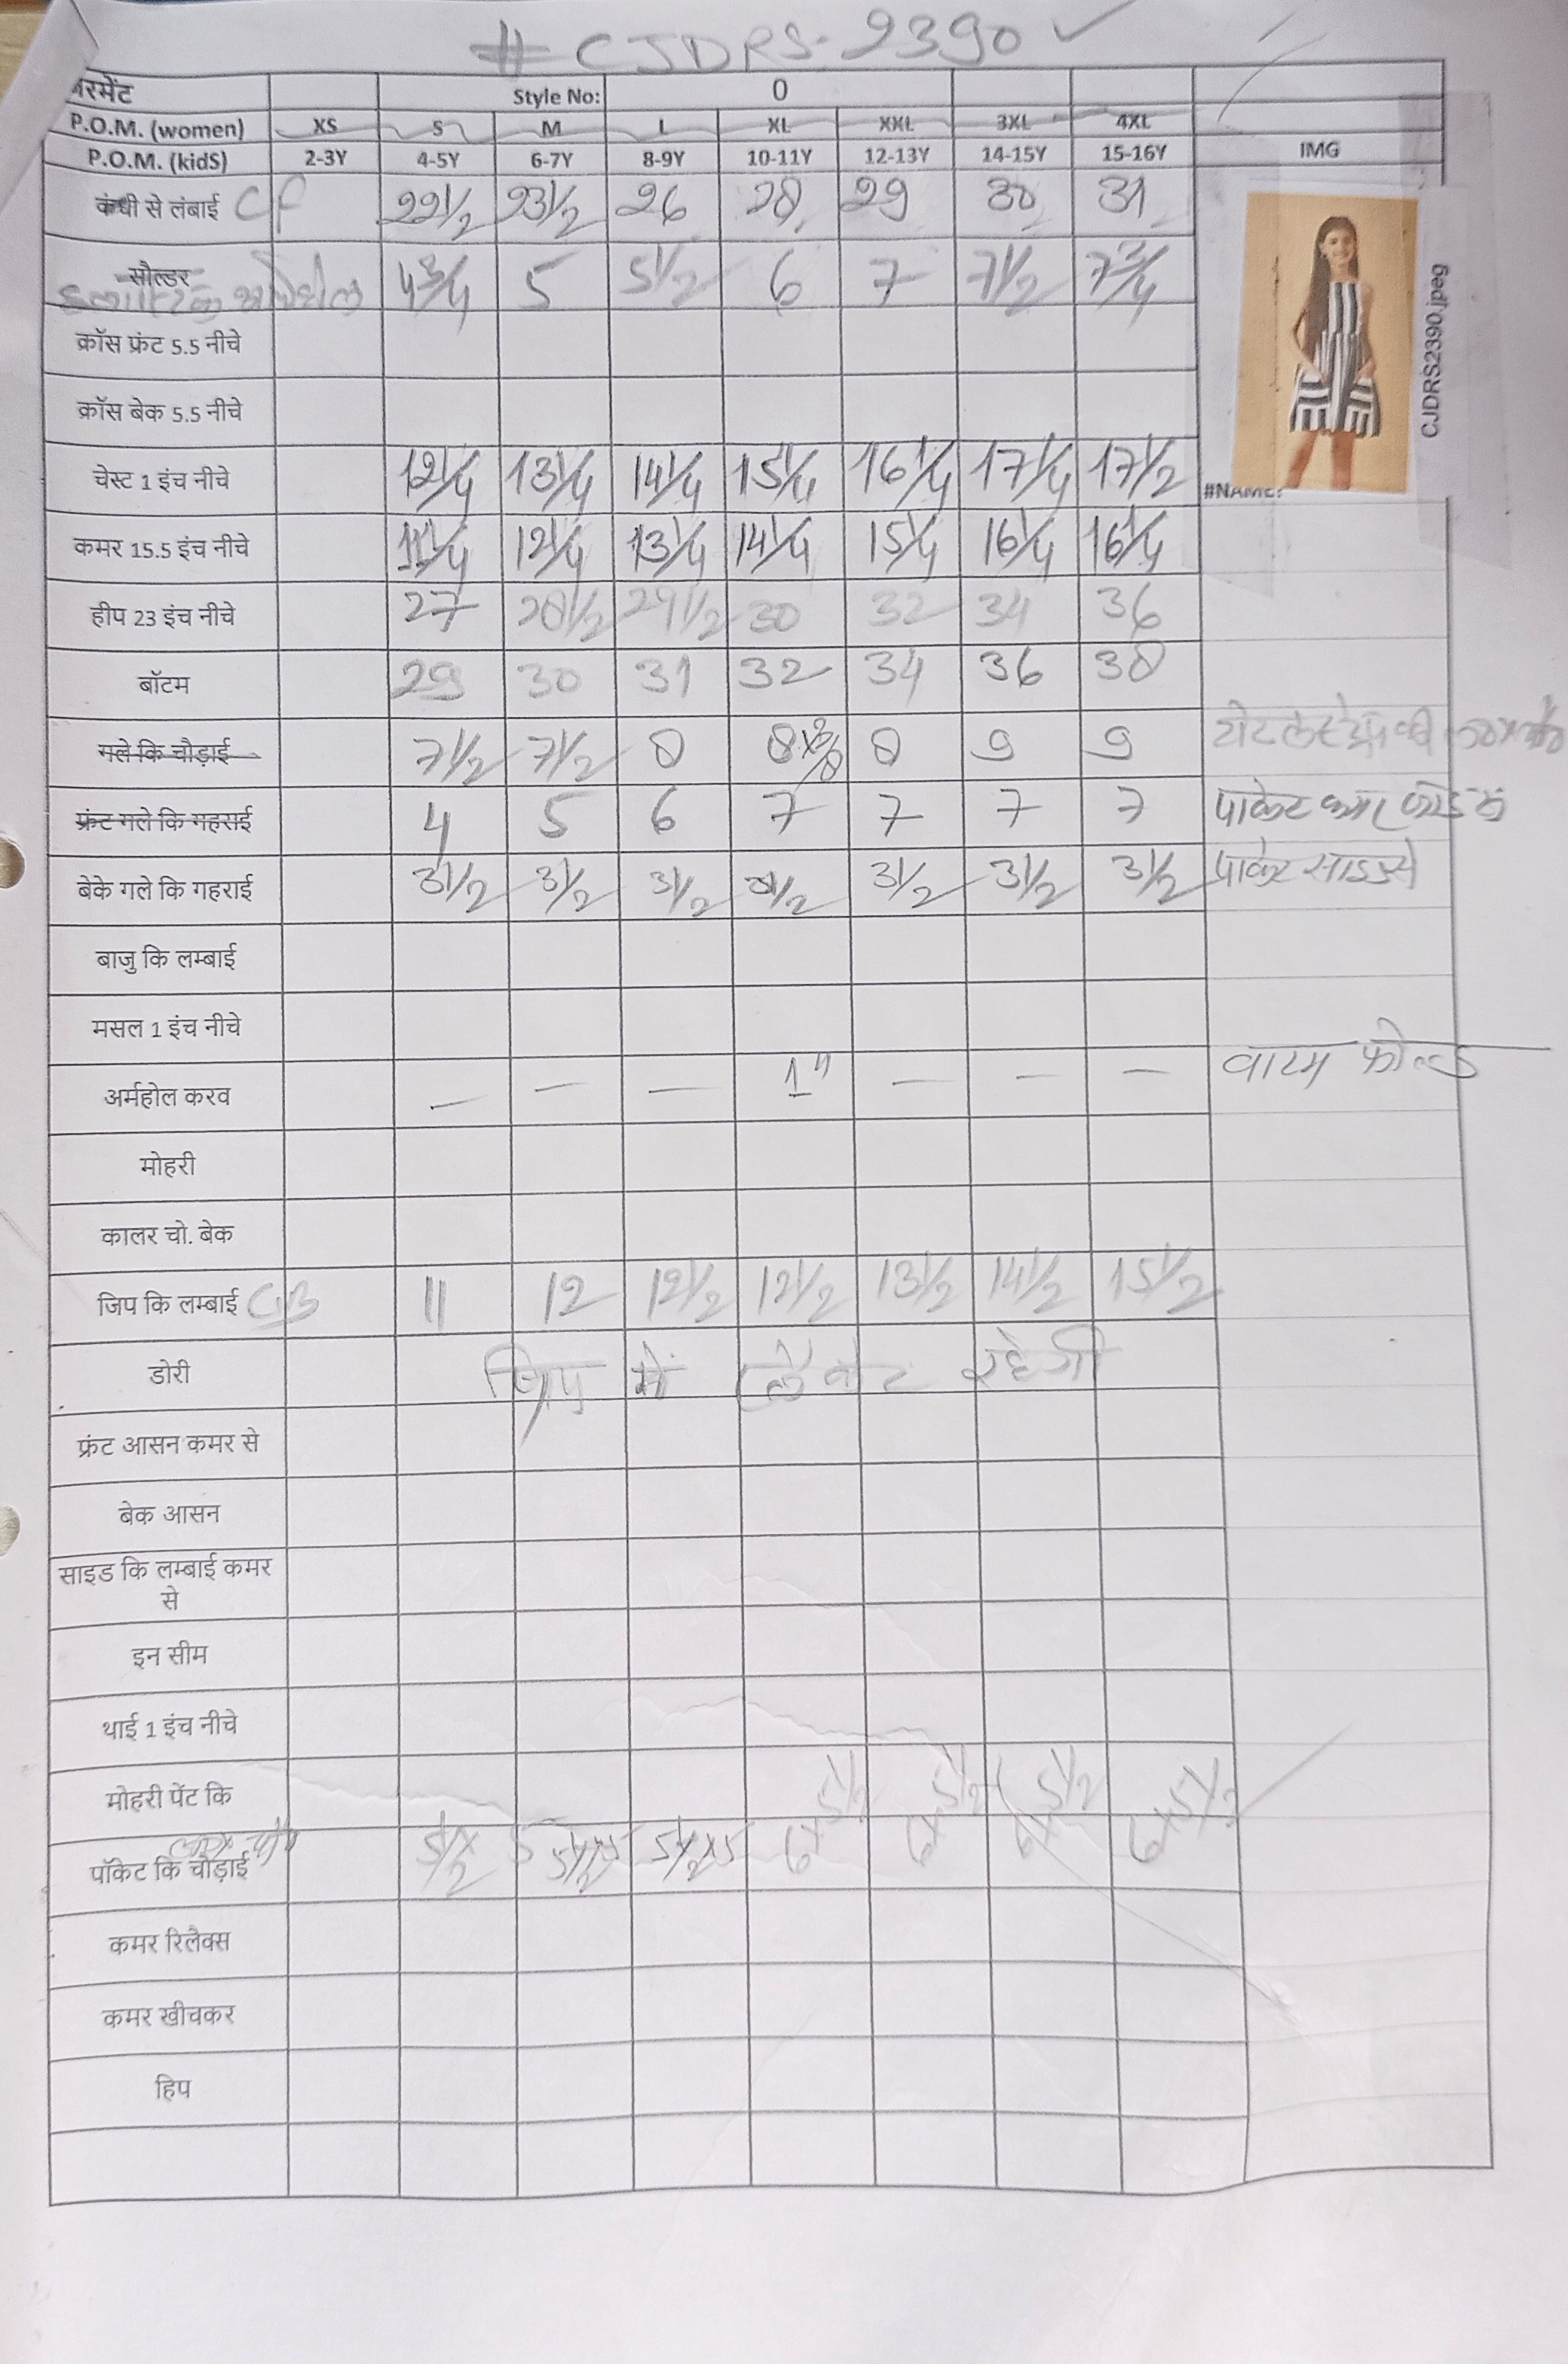 # CJDRS-2390 ✓
गरमेंट Style No: 0
P.O.M. (women) XS S M L XL XXL 3XL 4XL
P.O.M. (kidS) 2-3Y 4-5Y 6-7Y 8-9Y 10-11Y 12-13Y 14-15Y 15-16Y IMG
कंधी से लंबाई CF 22 1/2 23 1/2 26 28 29 30 31
सौल्डर 4 3/4 5 5 1/2 6 7 7 1/2 7 3/4
CJDRS2390.jpeg
क्रॉस फ्रंट 5.5 नीचे
क्रॉस बेक 5.5 नीचे
चेस्ट 1 इंच नीचे 12 1/4 13 1/4 14 1/4 15 1/4 16 1/4 17 1/4 17 1/2
#NAME?
कमर 15.5 इंच नीचे 11 1/4 12 1/4 13 1/4 14 1/4 15 1/4 16 1/4 16 1/4
हीप 23 इंच नीचे 27 28 1/2 29 1/2 30 32 34 36
बॉटम 29 30 31 32 34 36 38
गले कि चौड़ाई 7 1/2 7 1/2 8 8 8 9 9
फ्रंट गले कि गहराई 4 5 6 7 7 7 7 पाकेट
बेके गले कि गहराई 3 1/2 3 1/2 3 1/2 3 1/2 3 1/2 3 1/2 3 1/2 पाकेट साइड से
बाजु कि लम्बाई
मसल 1 इंच नीचे
अर्महोल करव — — — 1" — — — वाटम फोल्ड
मोहरी
कालर चो. बेक
जिप कि लम्बाई CB 11 12 12 1/2 12 1/2 13 1/2 14 1/2 15 1/2
डोरी जिप में रहेगी
फ्रंट आसन कमर से
बेक आसन
साइड कि लम्बाई कमर
से
इन सीम
थाई 1 इंच नीचे
मोहरी पेंट कि
पॉकेट कि चौड़ाई 5 1/2 x 5 5 1/2 x 5 5 1/2 x 5 6 x 5 1/2 6 x 5 1/2 6 x 5 1/2 6 x 5 1/2
कमर रिलैक्स
कमर खीचकर
हिप